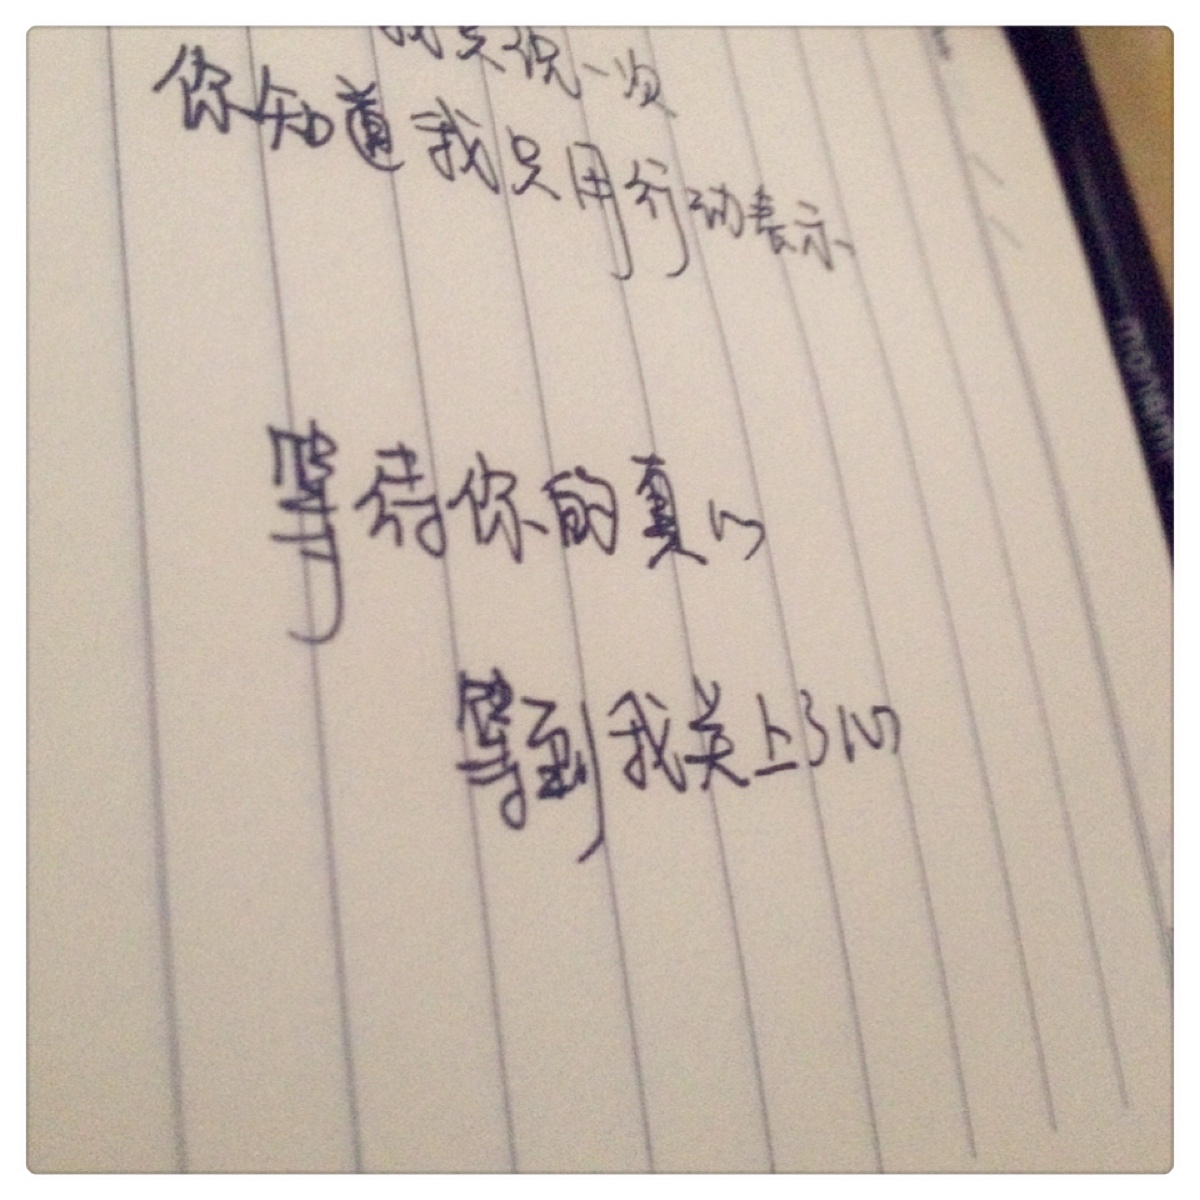 我只说一次
你知道我只用行动表示
等待你的真心
等到我关上了心